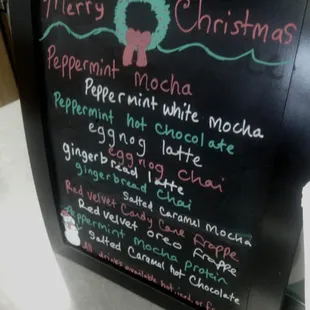 Merry Christmas
Peppermint mocha
Peppermint white mocha
Peppermint hot chocolate
eggnog latte
eggnog chai
gingerbread latte
gingerbread chai
Salted caramel mocha
Red velvet Candy Cane frappe
Red velvet oreo frappe
Peppermint mocha protein
Salted Caramel hot Chocolate
All drinks available hot, iced, or